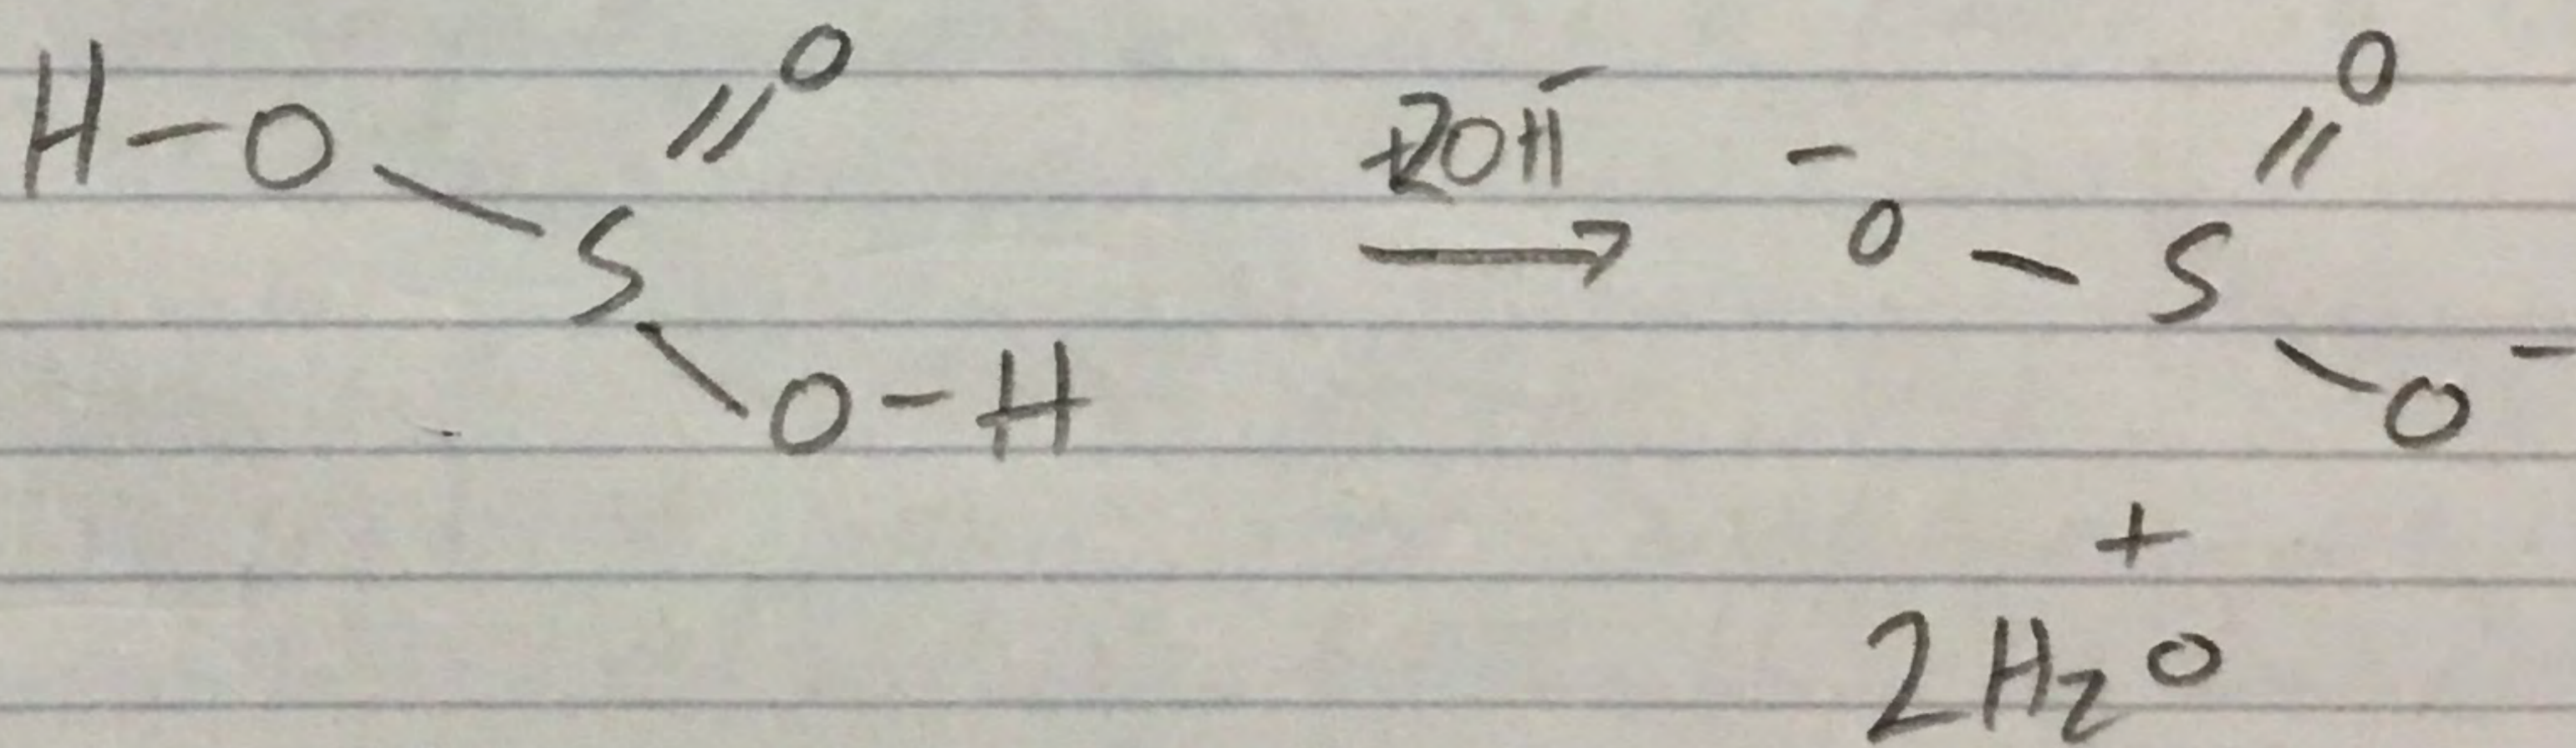 H-O
O
S
O-H
+2OH⁻
→
⁻O-S
O
O⁻
+
2H₂O